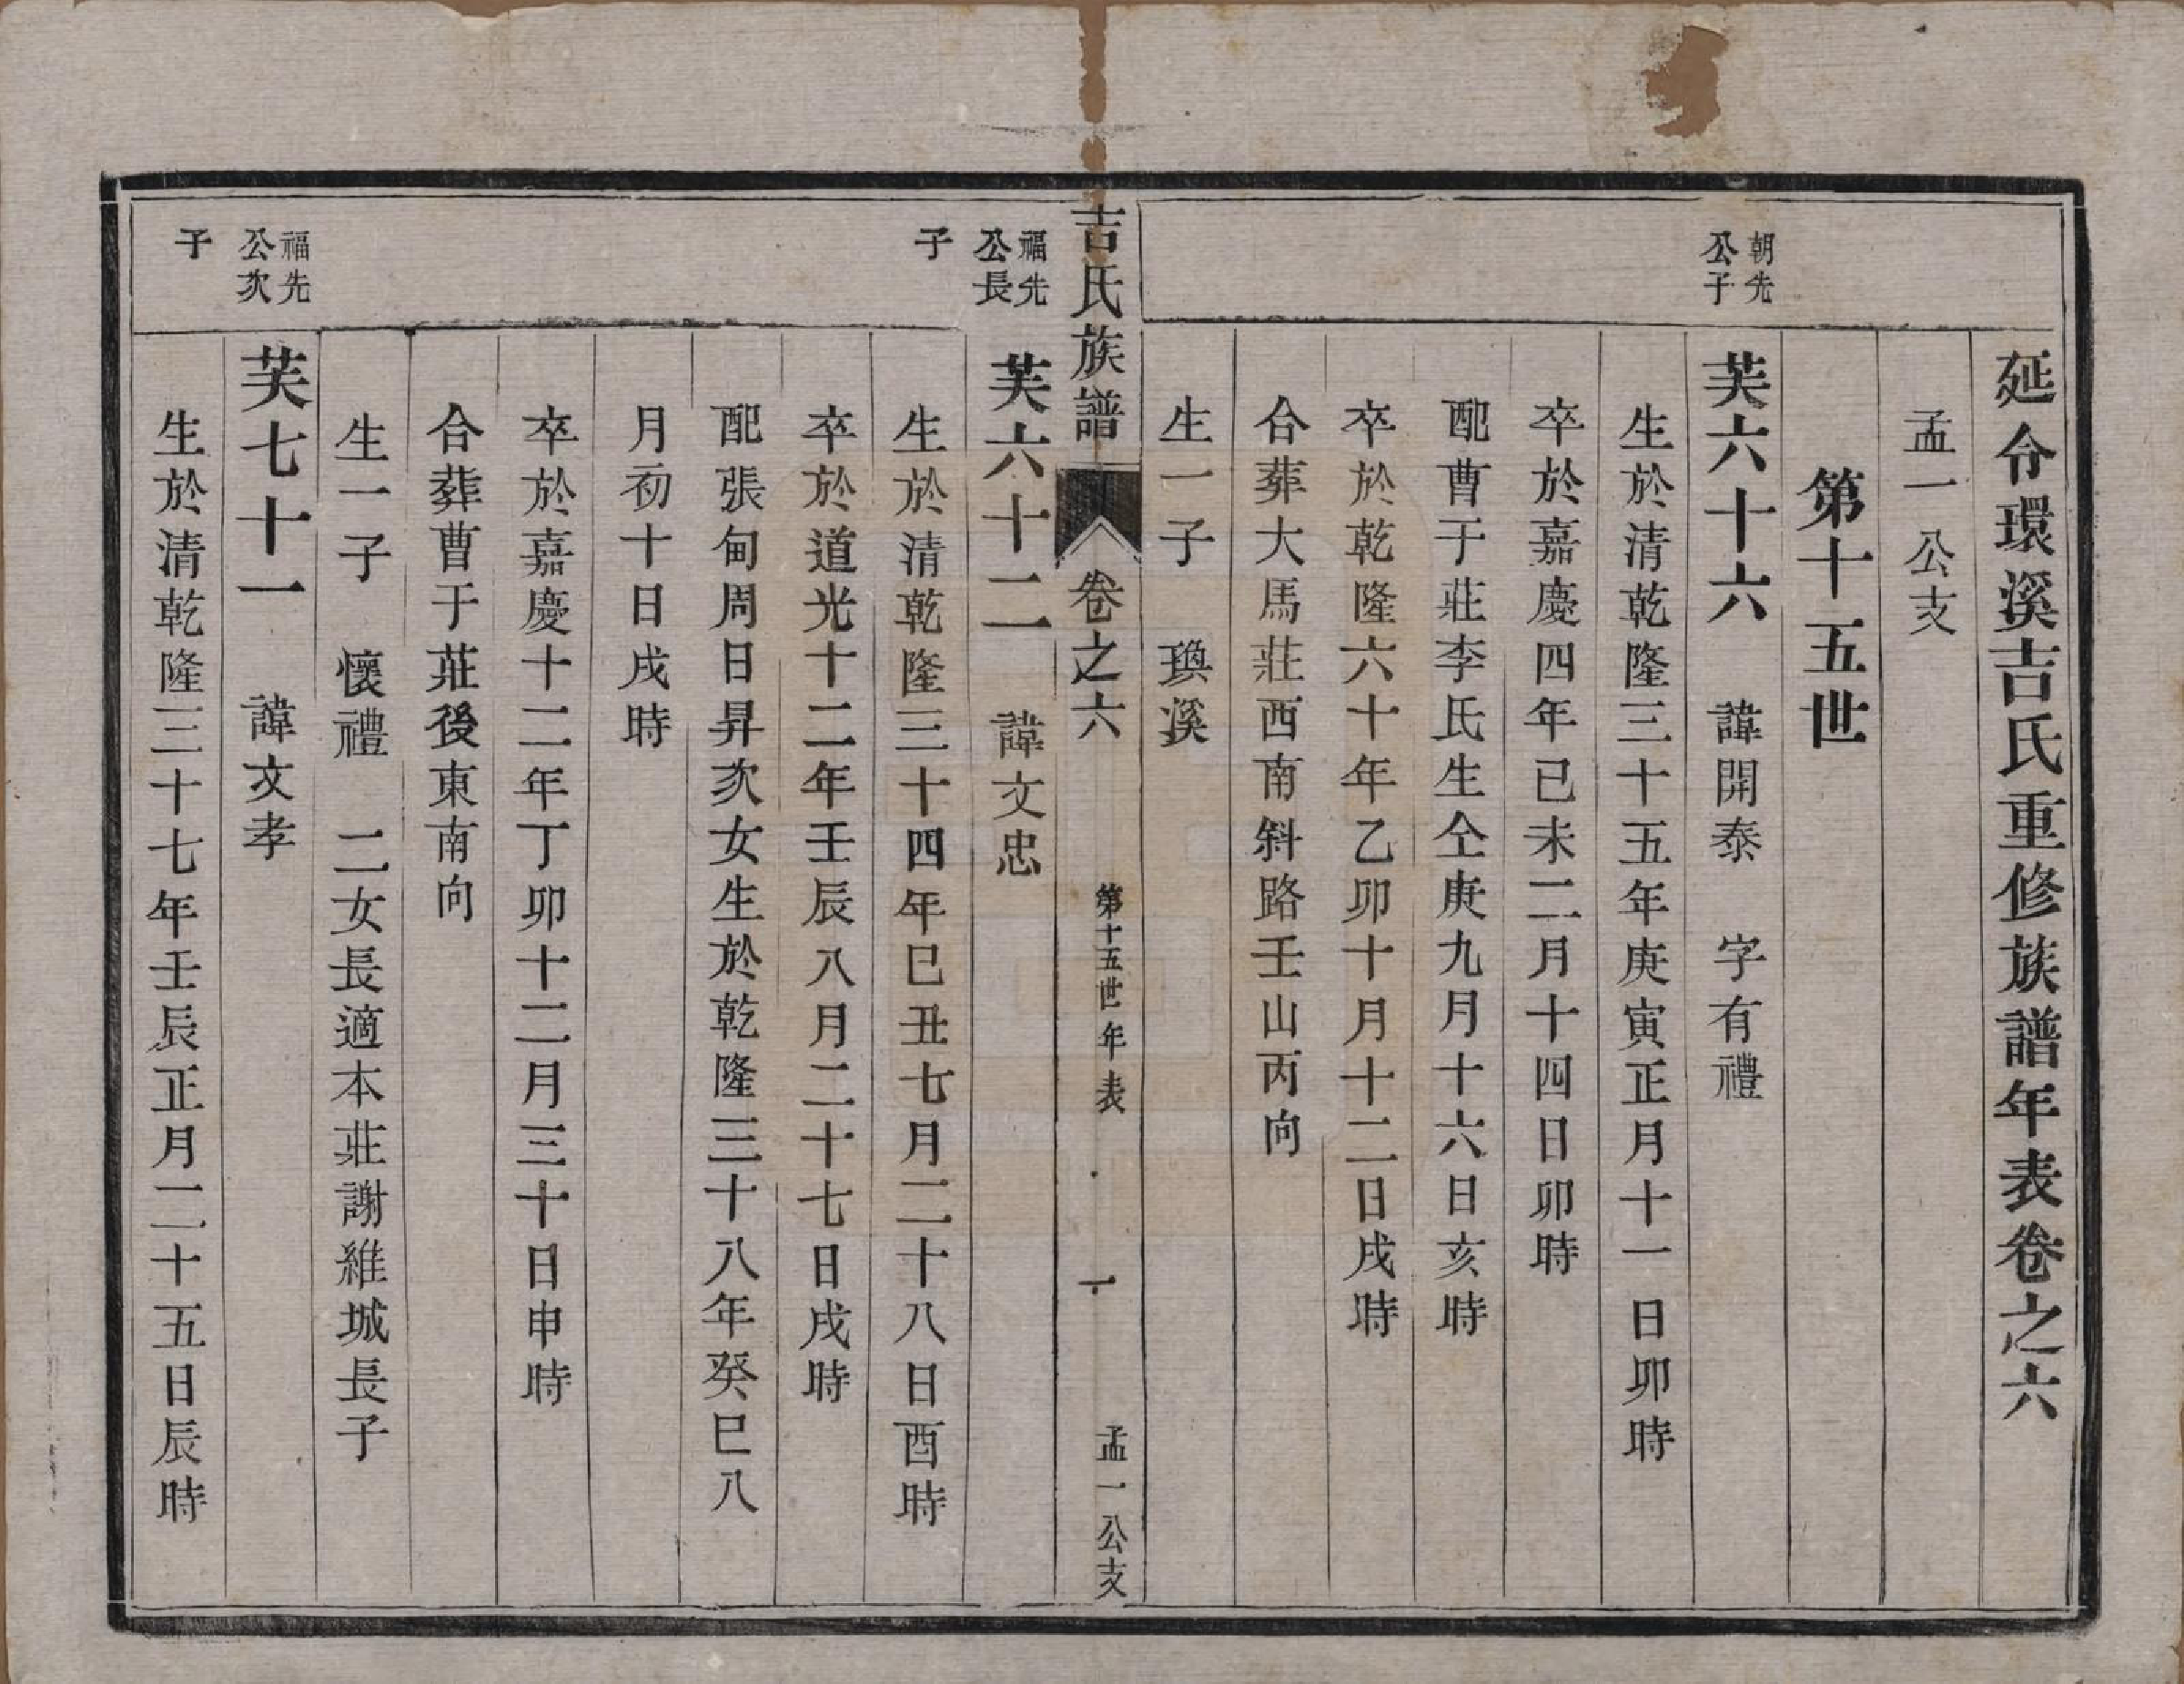 延令環溪吉氏重修族譜年表卷之六
孟一公支
第十五世
朝先
公子
芙六十六 諱開泰 字有禮
生於清乾隆三十五年庚寅正月十一日卯時
卒於嘉慶四年已未二月十四日卯時
配曹于莊李氏生仝庚九月十六日亥時
卒於乾隆六十年乙卯十月十二日戌時
合葬大馬莊西南斜路壬山丙向
生一子 瑍溪
吉氏族譜 卷之六 第十五世年表 一 孟一公支
福先
公長
子
芙六十二 諱文忠
生於清乾隆三十四年巳丑七月二十八日酉時
卒於道光十二年壬辰八月二十七日戌時
配張甸周日昇次女生於乾隆三十八年癸巳八
月初十日戌時
卒於嘉慶十二年丁卯十二月三十日申時
合葬曹于莊後東南向
生一子 懷禮 二女長適本莊謝維城長子
福先
公次
子
芙七十一 諱文孝
生於清乾隆三十七年壬辰正月二十五日辰時